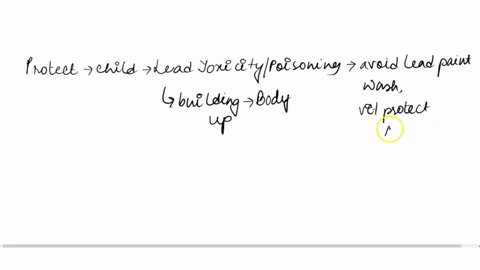 Protect → child → Lead Toxicity/Poisoning → avoid lead paint
↳ building → Body wash,
up vit protect